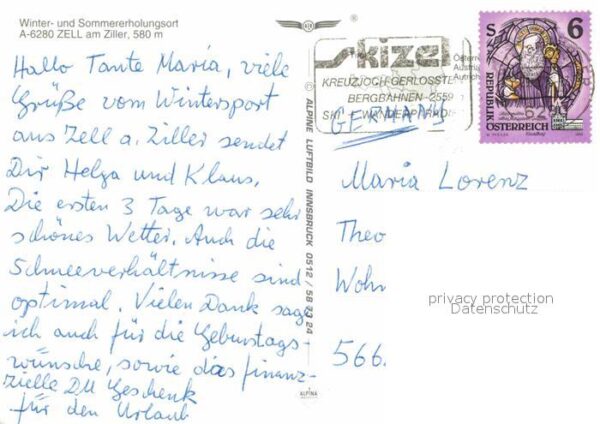 Winter- und Sommererholungsort
A-6280 ZELL am Ziller, 580 m
Hallo Tante Maria, viele
Grüße vom Wintersport
aus Zell a. Ziller sendet
Dir Helga und Klaus,
Die ersten 3 Tage war sehr
schönes Wetter. Auch die
Schneeverhältnisse sind
optimal. Vielen Dank sage
ich auch für die Geburtstags-
wünsche, sowie das finanz-
zielle DM Geschenk
für den Urlaub
ALPINE LUFTBILD INNSBRUCK 0512 / 58
24
ALPINA
skizel
KREUZJOCH-GERLOSSTE
BERGBAHNEN
SKI
GERMANY
S
6
REPUBLIK
ÖSTERREICH
Maria Lorenz
Theo
Wohr
566.
privacy protection
Datenschutz